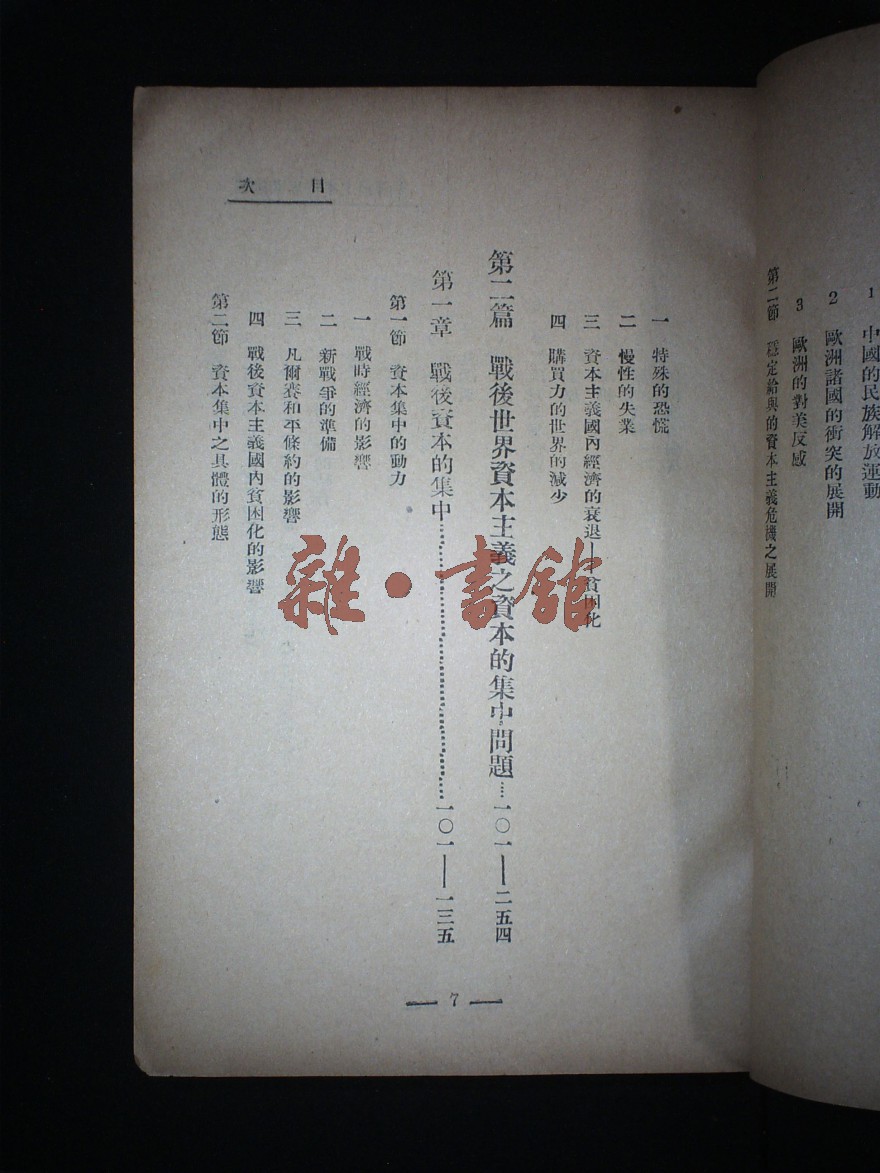 1 中國的民族解放運動
2 歐洲諸國的衝突的展開
3 歐洲的對美反感
第二節 穩定給與的資本主義危機之展開
目次
一 特殊的恐慌
二 慢性的失業
三 資本主義國內經濟的衰退——貧困化
四 購買力的世界的減少
第二篇 戰後世界資本主義之資本的集中問題……一〇一——二五四
第一章 戰後資本的集中……一〇一——一三五
第一節 資本集中的動力
一 戰時經濟的影響
二 新戰爭的準備
三 凡爾賽和平條約的影響
四 戰後資本主義國內貧困化的影響
第二節 資本集中之具體的形態
— 7 —
雜·書館